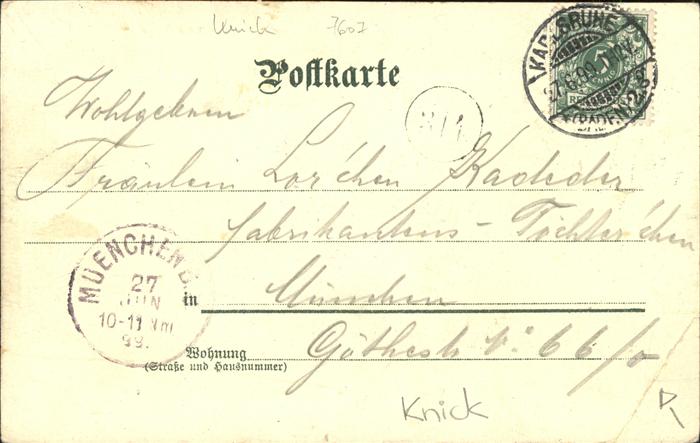 Knick 7607
Postkarte
KARLSRUHE
(BADEN)
5
Wohlgeboren
Fräulein Lor'chen
Fabrikantens - Töchter'chen
MUENCHEN
27
JUN
10-11 Vm
99.
in München
Wohnung
(Straße und Hausnummer)
Göthestr No. 66/0
Knick